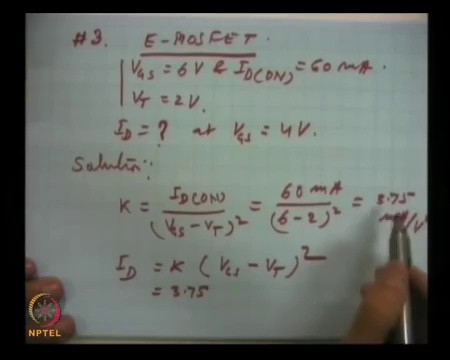 #3. E-MOSFET
V_GS = 6V & I_D(ON) = 60 mA.
V_T = 2V.
I_D = ? at V_GS = 4V.
Solution:
K = I_D(ON) / (V_GS - V_T)² = 60 mA / (6-2)² = 3.75
I_D = K (V_GS - V_T)²
= 3.75
NPTEL